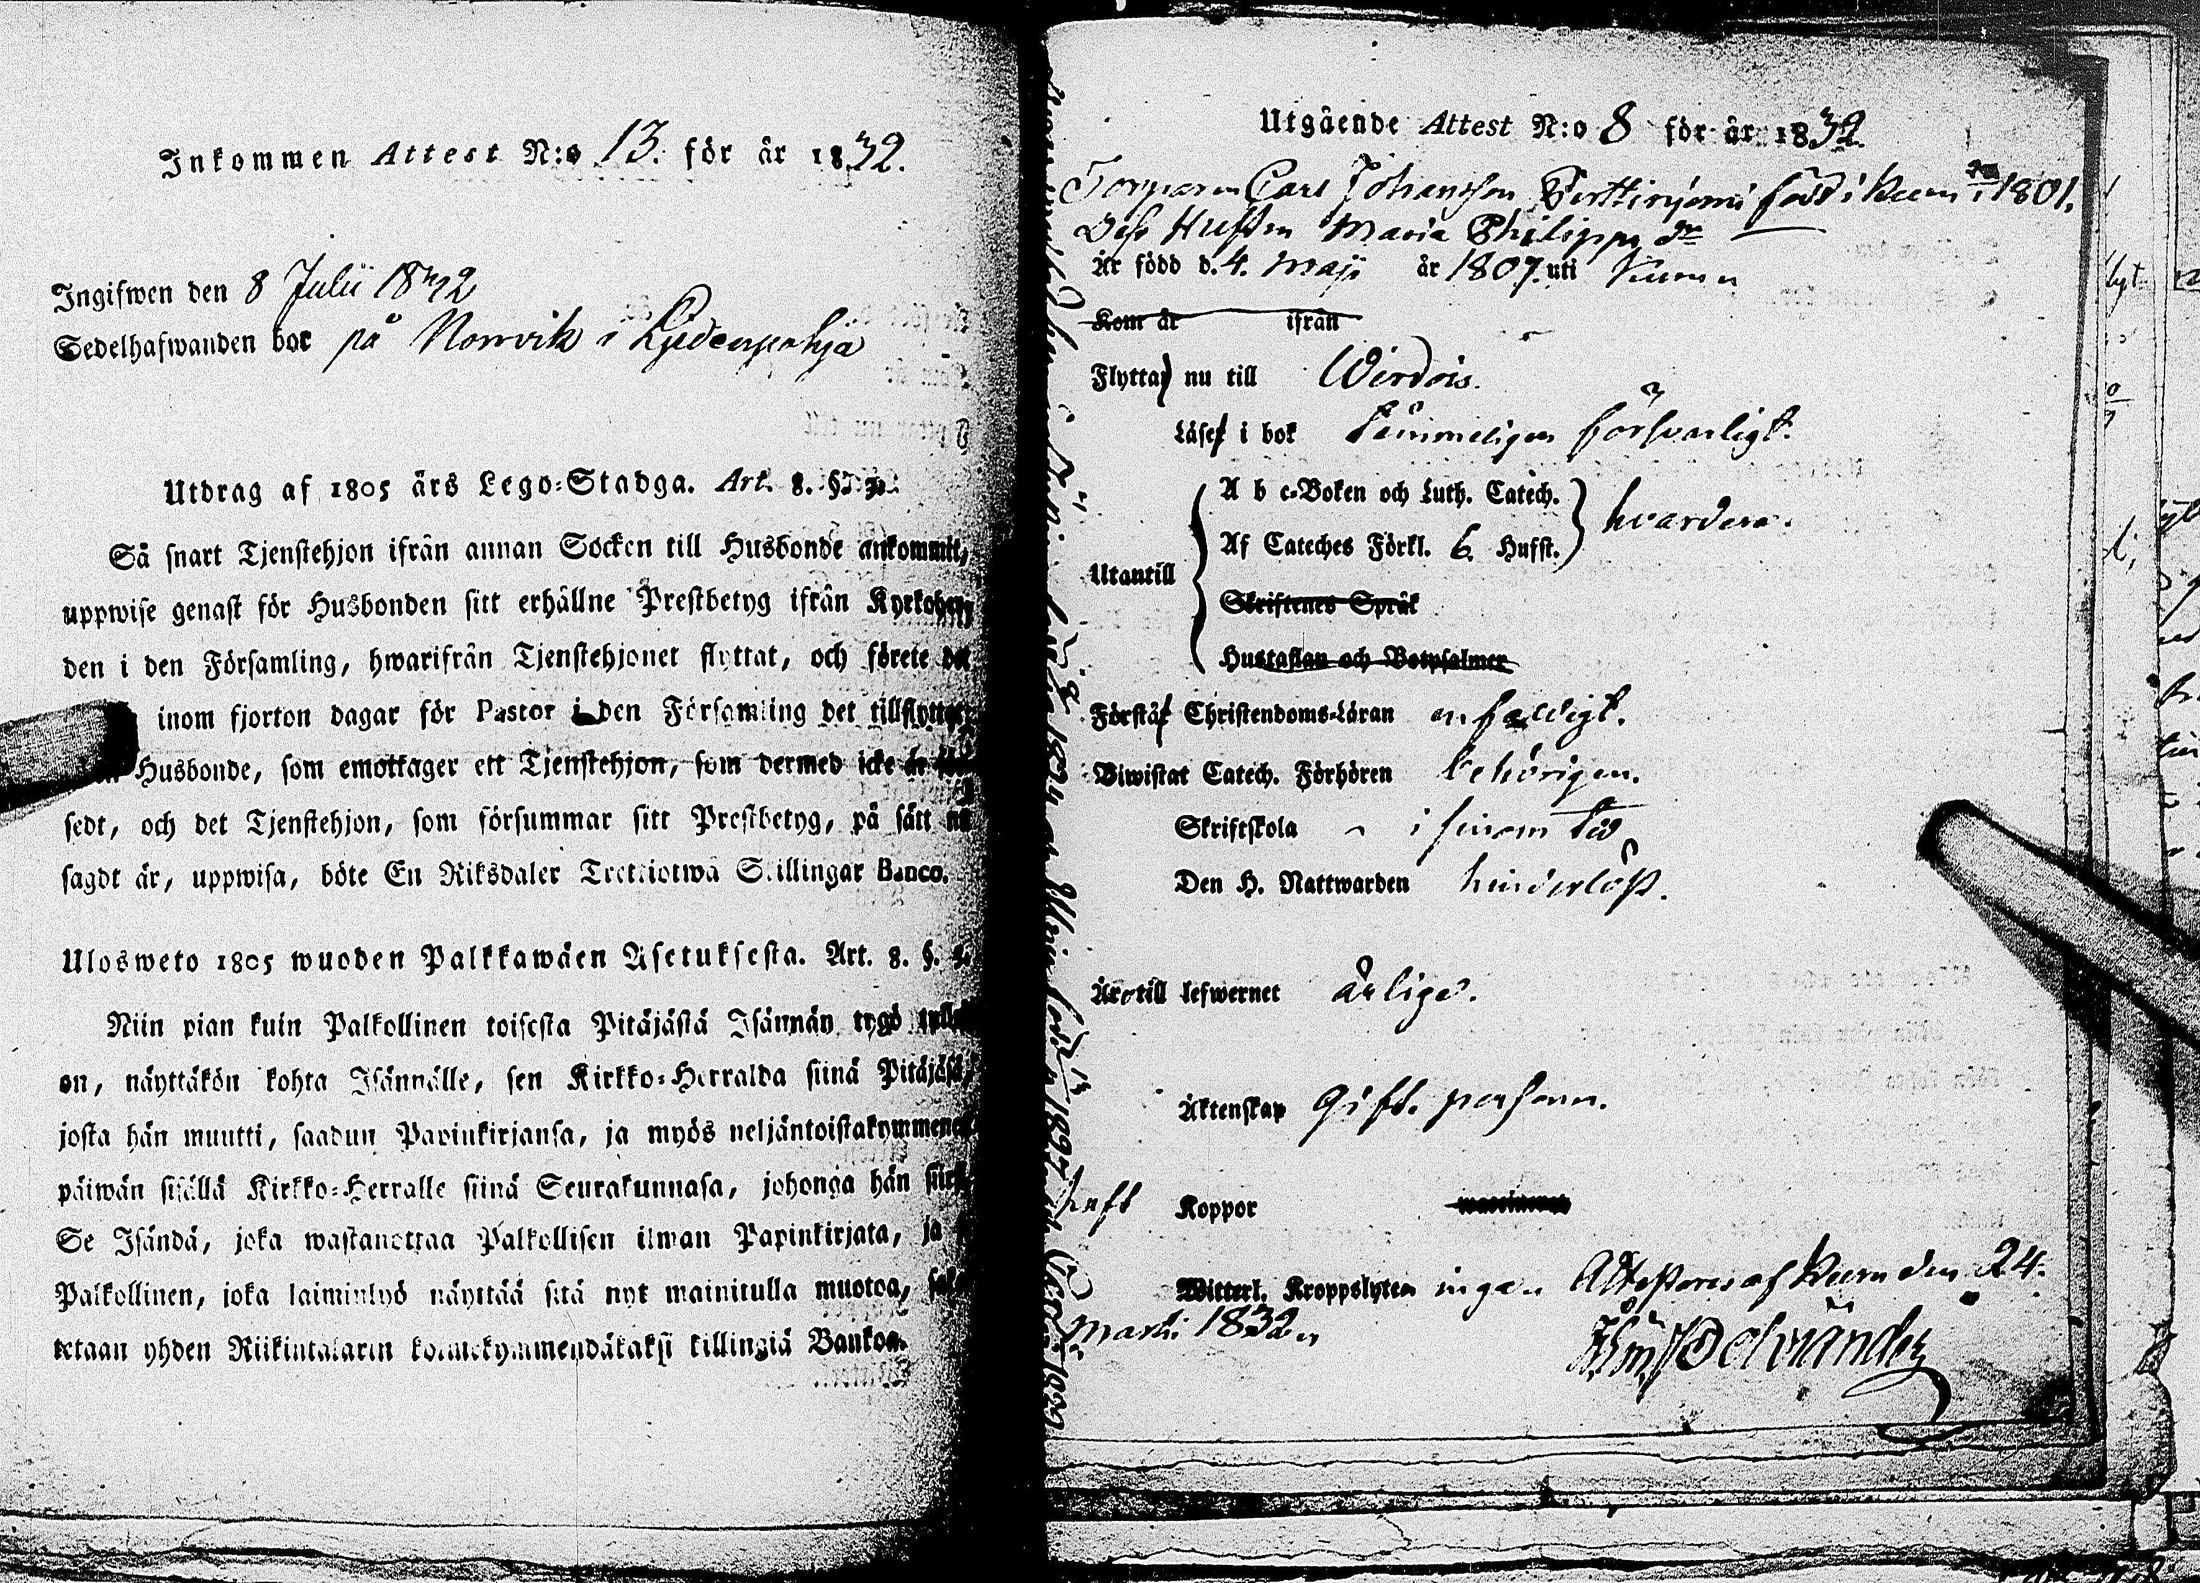 Inkommen Attest N:o 13. för år 1832.
Ingifwen den 8 Julii 1832
Sedelhafwanden bor på Norrvik i Liedenpohja
Utdrag af 1805 års Lego-Stadga. Art. 8. §.
Så snart Tjenstehjon ifrån annan Socken till Husbonde ankommit,
uppwise genast för Husbonden sitt erhållne Prestbetyg ifrån Kyrkoher-
den i den Församling, hwarifrån Tjenstehjonet flyttat, och förete det
inom fjorton dagar för Pastor i den Församling det tillflyttat
Husbonde, som emottager ett Tjenstehjon, som dermed icke är
sedt, och det Tjenstehjon, som försummar sitt Prestbetyg, på sätt nu
sagdt är, uppwisa, böte En Riksdaler Trettiotwå Skillingar Banco.
Ulosweto 1805 wuoden Palkkawäen Asetuksesta. Art. 8. §.
Niin pian kuin Palkollinen toisesta Pitäjästä Isännän tygö tullut
on, näyttäkön kohta Isännälle, sen Kirkko-Herralda siinä Pitäjäsä,
josta hän muutti, saadun Papinkirjansa, ja myös neljäntoistakymmenen
päiwän sisällä Kirkko-Herralle siinä Seurakunnasa, johonga hän
Se Isändä, joka wastanottaa Palkollisen ilman Papinkirjata, ja
Palkollinen, joka laiminlyö näyttää sitä nyt mainitulla muotoa,
tetaan yhden Riikintalarin kolmekymmendäkaksi killingiä Bankoa.
Utgående Attest N:o 8 för år 1832.
Torparen Carl Johansson Perttinjemi född i Keuru 1801.
Dess Hustru Maria Philipps dr
Är född d. 4. Maji år 1807. uti Keuru
Kom år ifrån
Flytta nu till Wirdois.
Läse i bok Temmeligen försvarligt.
A b c-Boken och Luth. Catech.
Af Cateches Förkl. 6. Hufst. hvardera.
Utantill
Skriftenes Språk
Hustaflan och Botpsalmer
Förstå Christendoms-Läran enfaldigt.
Biwistat Catech. Förhören behörigen.
Skriftskola i sinom tid
Den H. Nattwarden hinderlöst.
Äro till lefwernet ärlige.
Äktenskap Gift. person.
haft Koppor
Witterl. Kroppslyten inga. Attesteras af Keuru den 24.
Martii 1832.